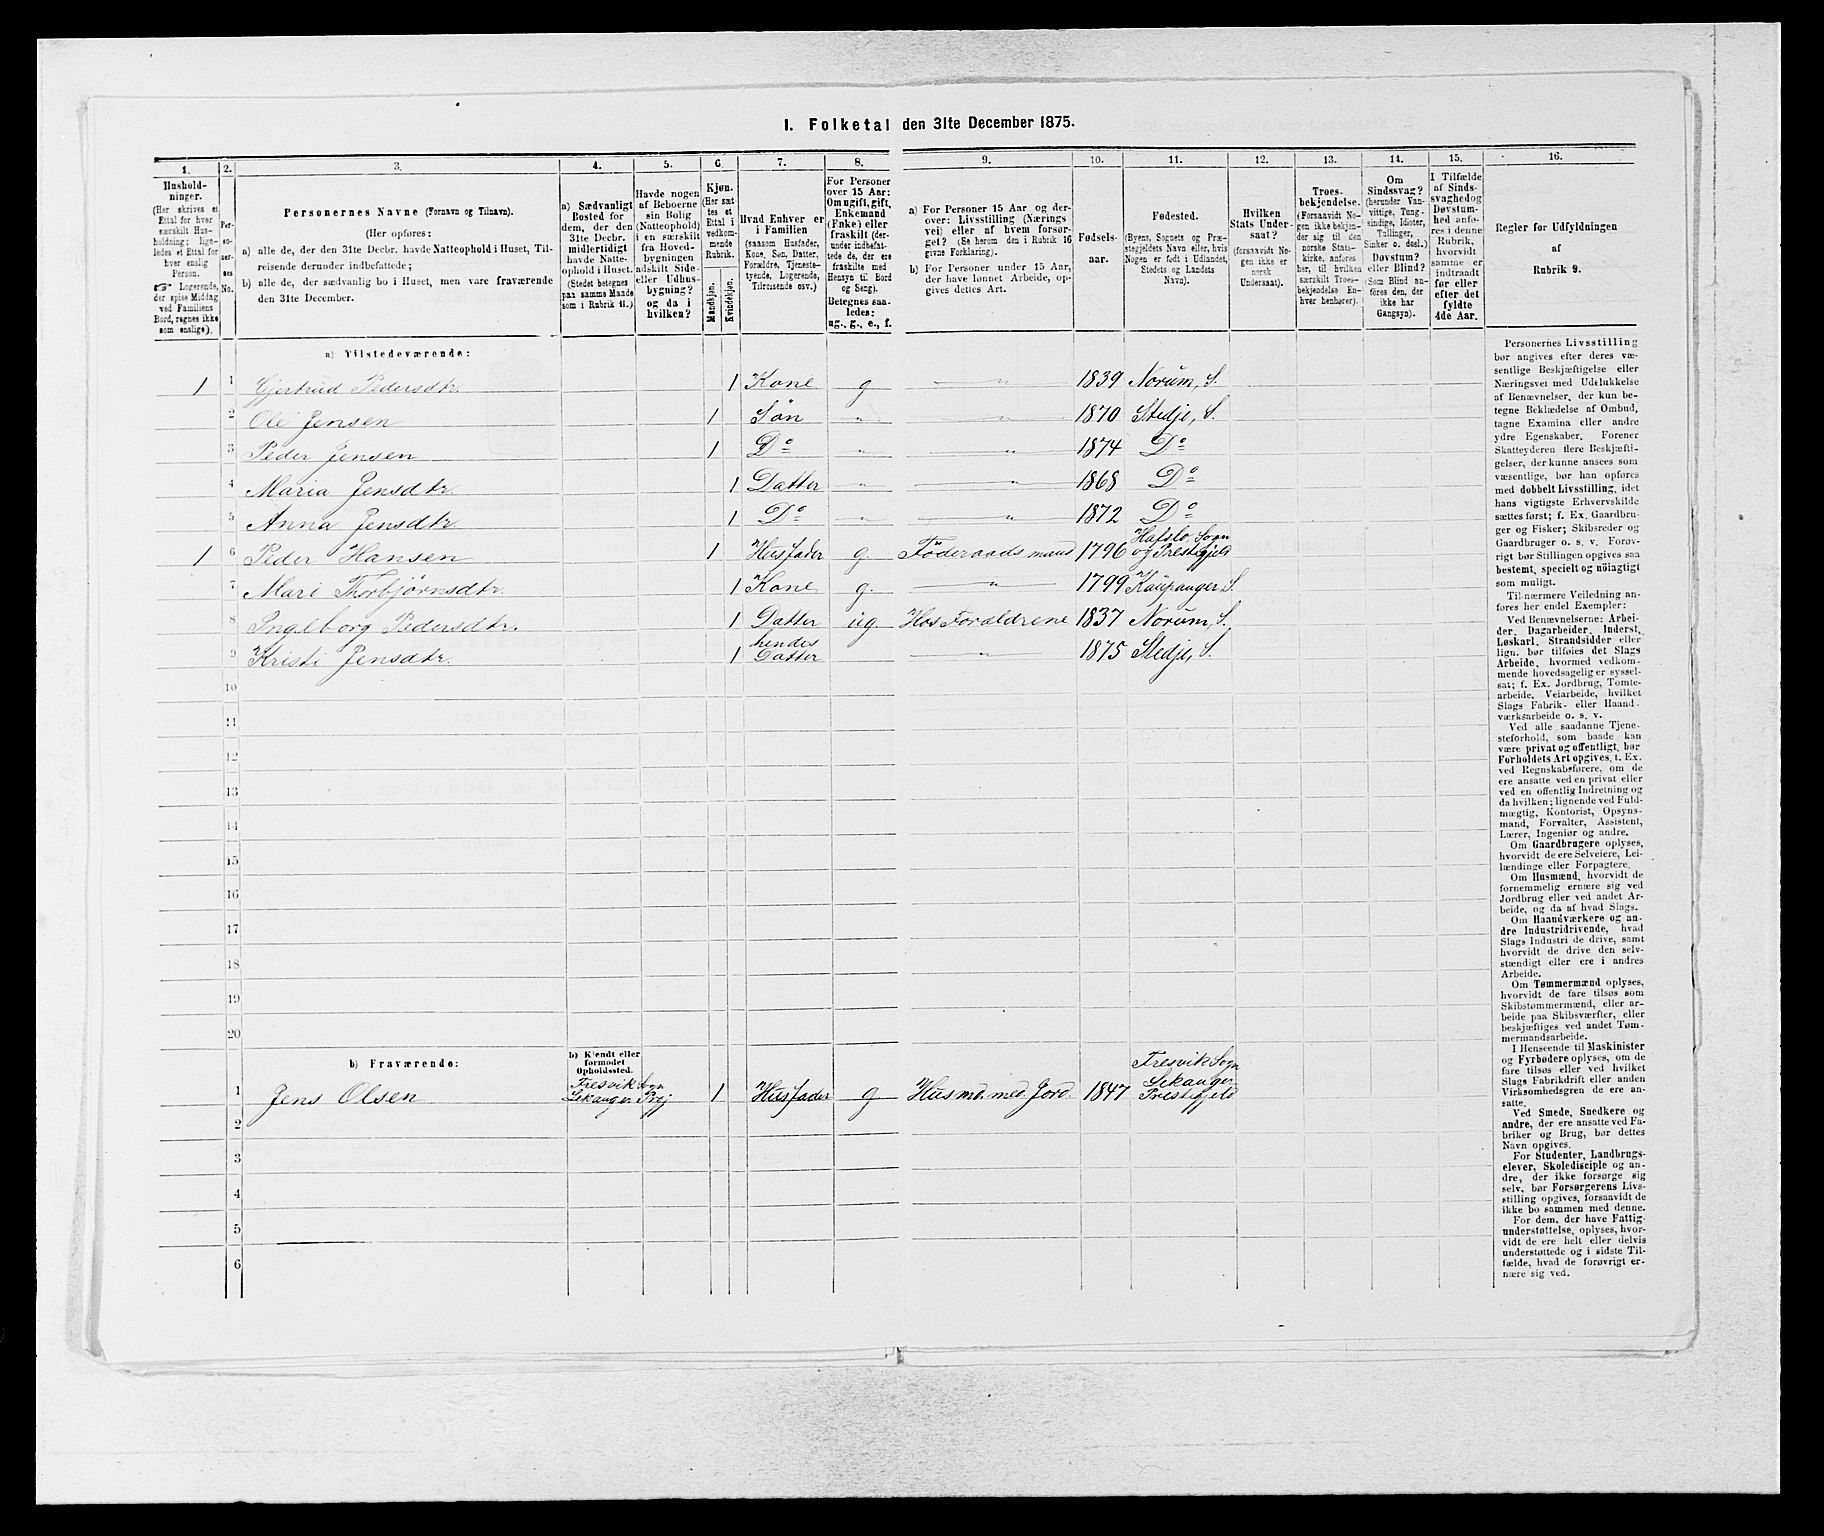 I. Folketal den 31te December 1875.
1. 2. 3. 4. 5. 6. 7. 8. 9. 10. 11. 12. 13. 14. 15. 16.
Hushold-
ninger.
(Her skrives et
Ettal for hver
særskilt Hus-
holdning; lige-
ledes et Ettal for
hver enslig
Person.
☞ Logerende,
der spise Middag
ved Familiens
Bord, regnes ikke
som enslige).
Per-
so-
ner-
nes
No.
Personernes Navne (Fornavn og Tilnavn).
(Her opføres:
a) alle de, der den 31te Decbr. havde Natteophold i Huset, Til-
reisende derunder indbefattede;
b) alle de, der sædvanlig bo i Huset, men vare fraværende
den 31te December.
a) Sædvanligt
Bosted for
dem, der den
31te Decbr.
midlertidigt
havde Natte-
ophold i Huset.
(Stedet betegnes
paa samme Maade
som i Rubrik 11.)
Havde nogen
af Beboerne
sin Bolig
(Natteophold)
i en særskilt
fra Hoved-
bygningen
adskilt Side-
eller Udhus-
bygning?
og da i
hvilken?
Kjøn.
(Her sæt
tes et
Ettal i
vedkom-
mende
Rubrik.
Mandkjøn.
Kvindekjøn.
Hvad Enhver er
i Familien
(saasom Husfader,
Kone, Søn, Datter,
Forældre, Tjeneste-
tyende, Logerende,
Tilreisende osv.)
For Personer
over 15 Aar:
Om ugift, gift,
Enkemand
(Enke) eller
fraskilt (der-
under indbefat-
tede de, der ere
fraskilte med
Hensyn til Bord
og Seng).
Betegnes saa-
ledes:
ug., g., e., f.
a) For Personer 15 Aar og der-
over: Livsstilling (Nærings
vei) eller af hvem forsør-
get? (Se herom den i Rubrik 16
givne Forklaring).
b) For Personer under 15 Aar,
der have lønnet Arbeide, op-
gives dettes Art.
Fødsels-
aar.
Fødested.
(Byens, Sognets og Præ-
stegjeldets Navn eller, hvis
Nogen er født i Udlandet,
Stedets og Landets
Navn).
Hvilken
Stats Under-
saat?
(forsaavidt No-
gen ikke er
norsk
Undersaat).
Troes-
bekjendelse.
(Forsaavidt No-
gen ikke bekjen-
der sig til den
norske Stats-
kirke, anføres
her, til hvilken
særskilt Troes-
bekjendelse En-
hver henhører).
Om
Sindssvag?
(herunder Van-
vittige, Tung-
sindige, Idioter,
Tullinger,
Sinker o. desl.)
Døvstum?
eller Blind?
(Som Blind an-
føres den, der
ikke har
Gangsyn).
I Tilfælde
af Sinds-
svaghed og
Døvstum-
hed anfø-
res i denne
Rubrik,
hvorvidt
samme er
indtraadt
før eller
efter det
fyldte
4de Aar.
Regler for Udfyldningen
af
Rubrik 9.
a) Tilstedeværende:
1 1 Gjertrud Pedersdtr. 1 Kone g " 1839 Norum, S.
2 Ole Jensen 1 Søn " " 1870 Stedje, S.
3 Peder Jensen 1 Do " " 1874 Do
4 Maria Jensdtr. 1 Datter " " 1868 Do
5 Anna Jensdtr 1 Do " " 1872 Do
1 6 Peder Hansen 1 Husfader g. Föderaadsmand 1796 Hafslo Sogn
og Prestegjeld
7 Mari Thorbjørnsdtr. 1 Kone g. " 1799 Kaupanger, S.
8 Ingeborg Pedersdtr. 1 Datter ug. Hos Foraldrene 1837 Norum, S.
9 Kristi Jensdtr. 1 hendes
Datter " 1875 Stedje, S.
10
11
12
13
14
15
16
17
18
19
20
b) Fraværende:
b) Kjendt eller
formodet
Opholdssted.
1 Jens Olsen Fresvik Sogn
Lekanger Prgj 1 Husfader g Husmd. med Jord 1847 Fresvik Sogn
Lekanger
Prestegjeld
2
3
4
5
6
Personernes Livsstilling
bør angives efter deres væ-
sentlige Beskjæftigelse eller
Næringsvei med Udelukkelse
af Benævnelser, der kun be-
tegne Beklædelse af Ombud,
tagne Examina eller andre
ydre Egenskaber. Forener
Skatteyderen flere Beskjæfti-
gelser, der kunne ansees som
væsentlige, bør han opføres
med dobbelt Livsstilling, idet
hans vigtigste Erhvervskilde
sættes først; f. Ex. Gaardbru-
ger og Fisker; Skibsreder og
Gaardbruger o. s. v. Forøv-
rigt bør Stillingen opgives saa
bestemt, specielt og nöiagtigt
som muligt.
Til nærmere Veiledning an-
føres her endel Exempler:
Ved Benævnelserne: Arbei-
der, Dagarbeider, Inderst,
Løskarl, Strandsidder eller
lign. bør tilføies det Slags
Arbeide, hvormed vedkom-
mende hovedsagelig er syssel-
sat; f. Ex. Jordbrug, Tomte-
arbeide, Veiarbeide, hvilket
Slags Fabrik- eller Haand-
værksarbeide o. s. v.
Ved alle saadanne Tjene-
steforhold, som baade kan
være privat og offentligt, bør
Forholdets Art opgives, t. Ex.
ved Regnskabsførere, om de
ere ansatte ved en privat eller
ved en offentlig Indretning og
da hvilken; lignende ved Fuld-
mægtig, Kontorist, Opsyns-
mand, Forvalter, Assistent,
Lærer, Ingeniør og andre.
Om Gaardbrugere oplyses,
hvorvidt de ere Selveiere, Lei-
lændinge eller Forpagtere.
Om Husmænd, hvorvidt de
fornemmelig ernære sig ved
Jordbrug eller ved andet Ar-
beide, og da af hvad Slags.
Om Haandværkere og an-
dre Industridrivende, hvad
Slags Industri de drive, samt
hvorvidt de drive den selv-
stændigt eller ere i andres
Arbeide.
Om Tømmermænd oplyses,
hvorvidt de fare tilsøs som
Skibstømmermænd, eller ar-
beide paa Skibsværfter, eller
beskjæftiges ved andet Tøm-
mermandsarbeide.
I Henseende til Maskinister
og Fyrbødere oplyses, om de
fare tilsøs eller ved hvilket
Slags Fabrikdrift eller anden
Virksomhedsgren de ere an-
satte.
Ved Smede, Snedkere og
andre, der ere ansatte ved Fa-
briker og Brug, bør dettes
Navn opgives.
For Studenter, Landbrugs-
elever, Skoledisciple og an-
dre, der ikke forsørge sig
selv, bør Forsørgerens Livs-
stilling opgives, forsaavidt de
ikke bo sammen med denne.
For dem, der have Fattig-
understøttelse, oplyses, hvor-
vidt de ere helt eller delvis
understøttede og i sidste Til-
fælde, hvad de forøvrigt er-
nære sig ved.